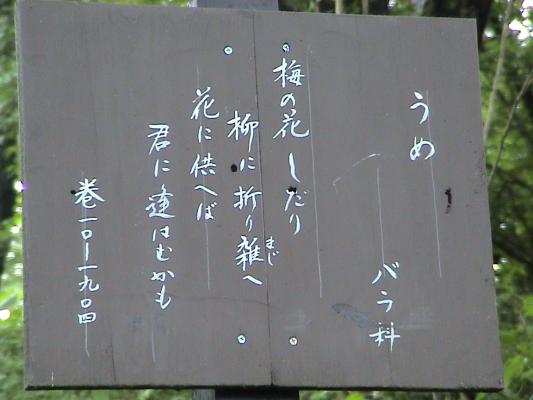 うめ
バラ科
梅の花しだり
柳に折り雑へ
まじ
花に供へば
君に逢はむかも
巻一〇ー一九〇四